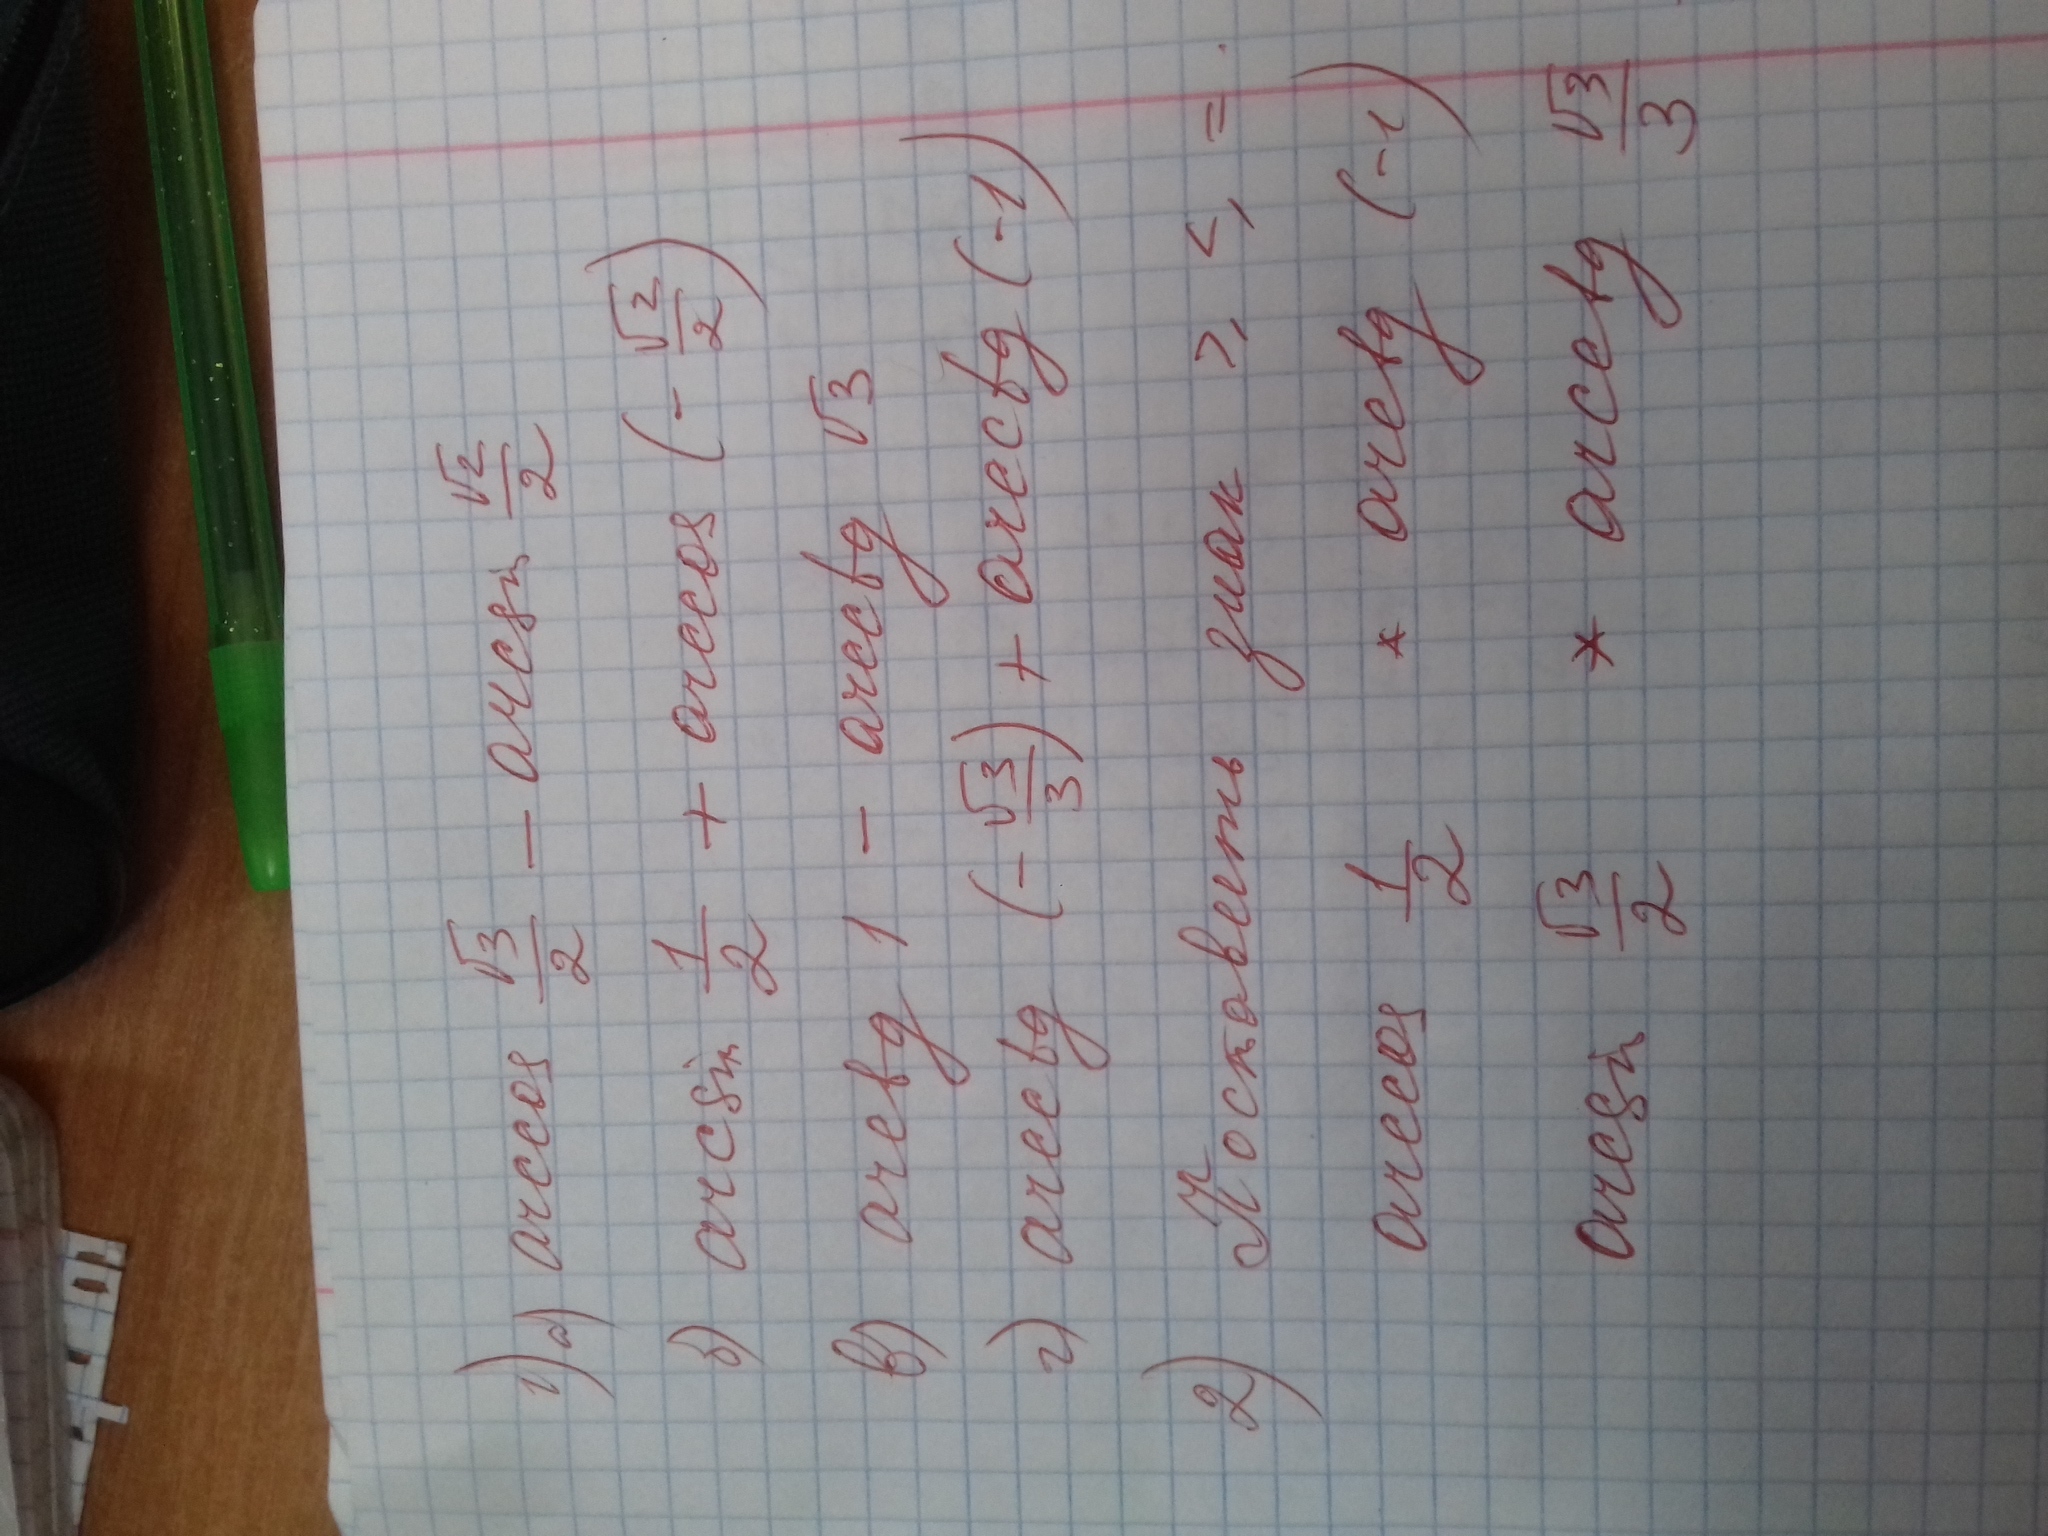 1) а) arccos √3/2 – arcsin √2/2
б) arcsin 1/2 + arccos (- √2/2)
в) arctg 1 – arcctg √3
г) arcctg (- √3/3) + arcctg (-1)
2) Поставить знак >, <, =.
arccos 1/2 * arctg (-1)
arcsin √3/2 * arcctg √3/3